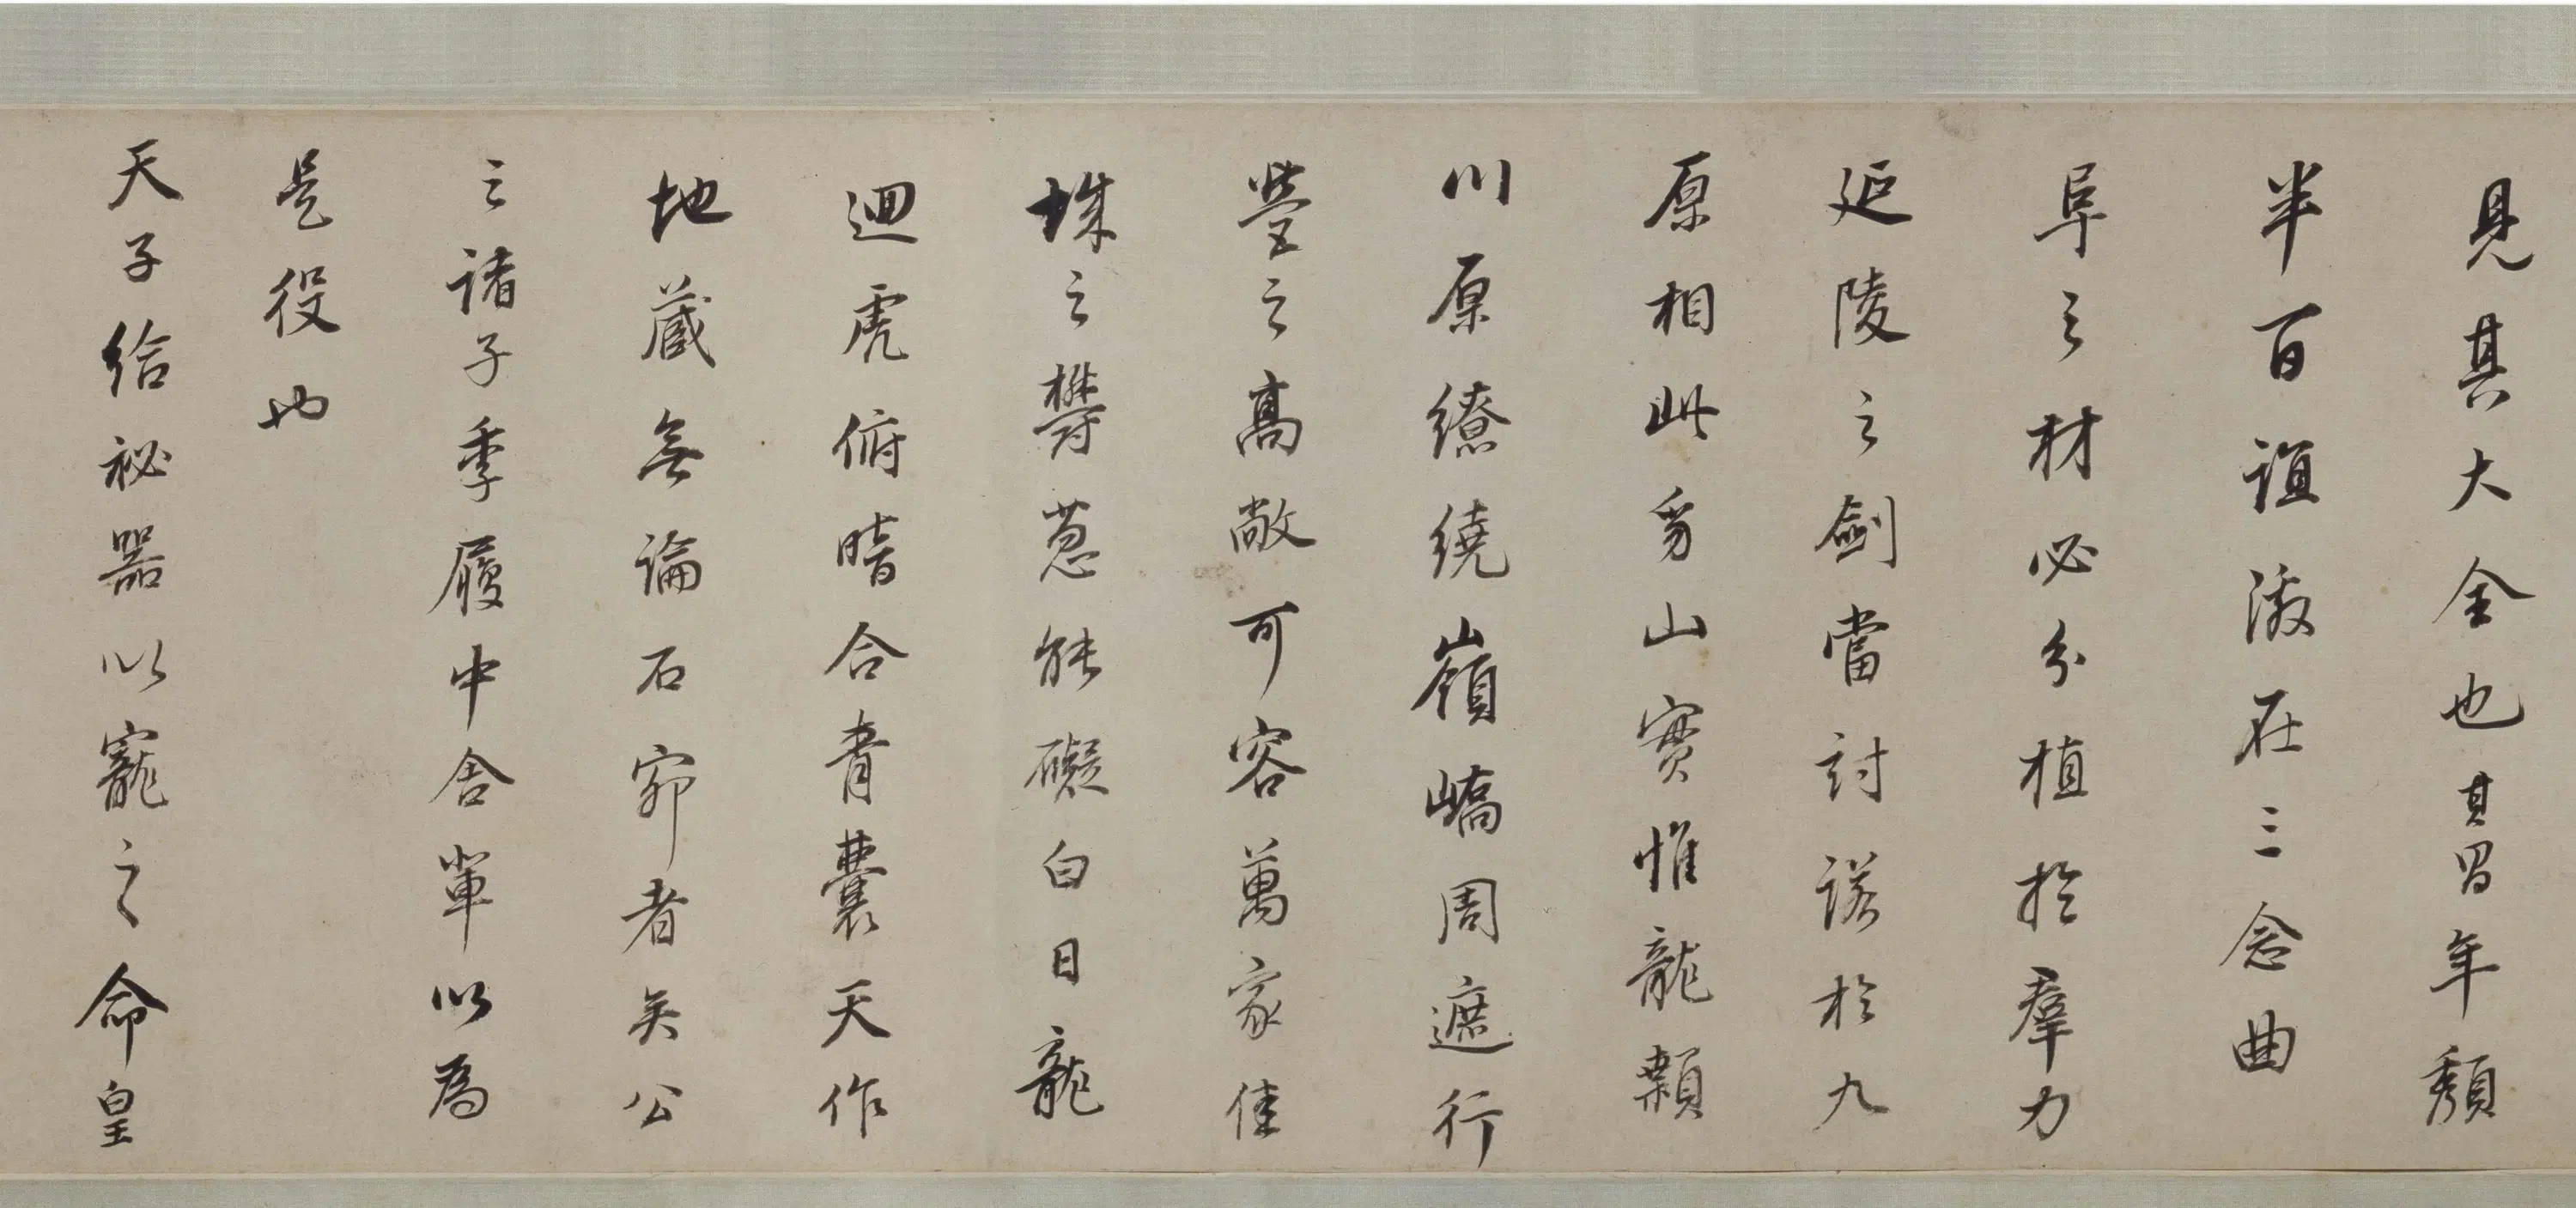 見其大全也其昌年頹
半百誼激在三念曲
阜之材必分植於羣力
延陵之劍當討諾於九
原相此勇山實惟龍顙
川原繚繞嶺嶠周遮行
塋之高敞可容萬家佳
城之鬱蔥能礙白日龍
迴虎俯暗合青囊天作
地藏無論石窌者矣公
之諸子季履中舍輩以為
是役也
天子給祕器以寵之命皇